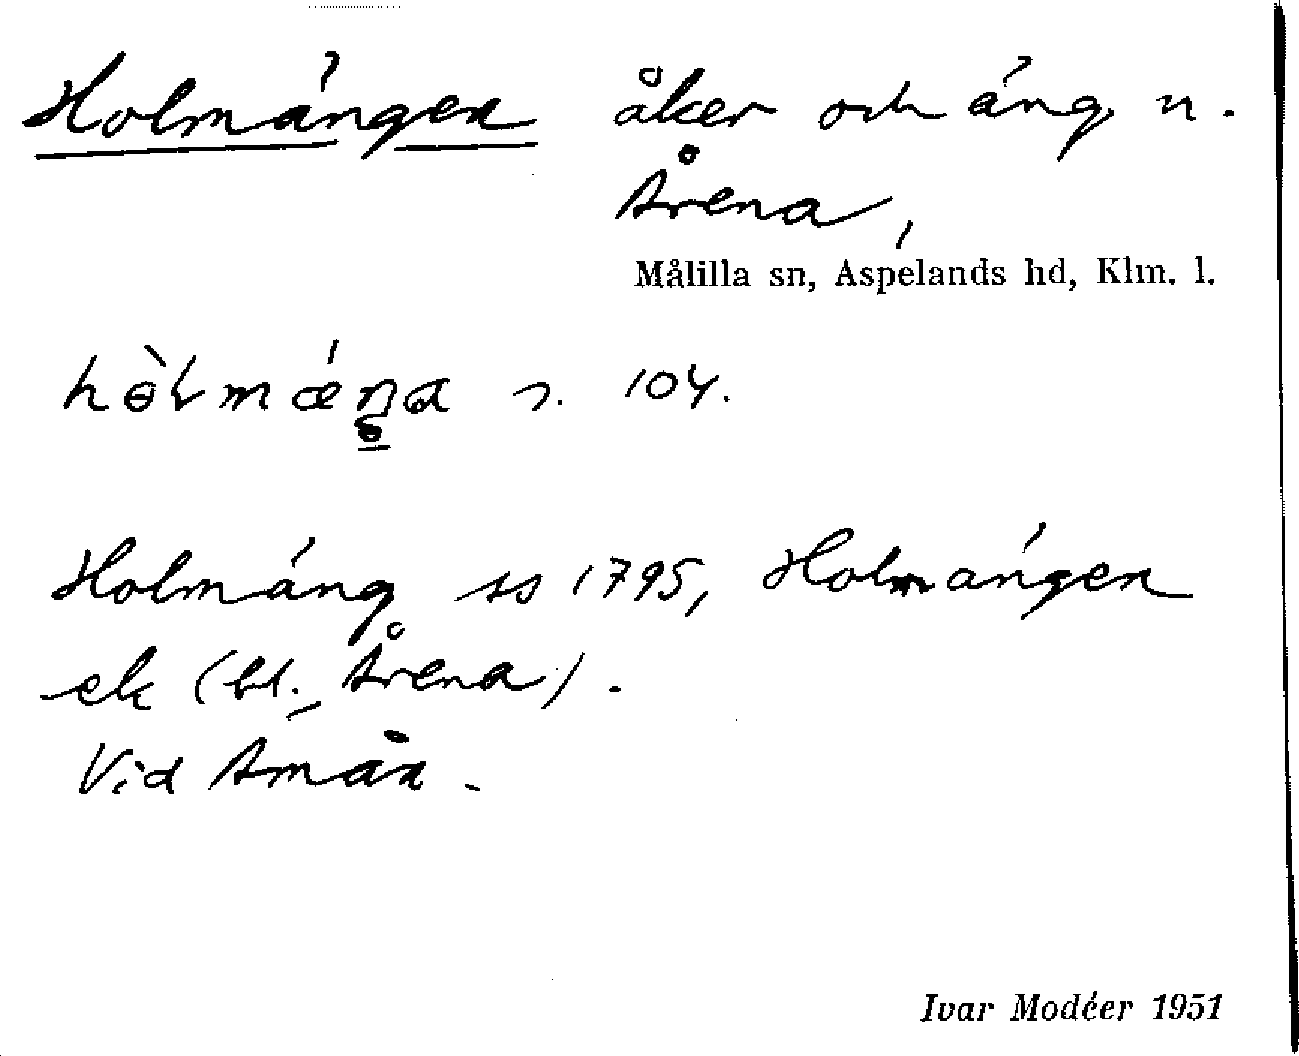 Holmängen åker och äng n.
Årena,
Målilla sn, Aspelands hd, Klm. l.
hòlmæ´ŋa n. 104.
Holmäng ss 1795, Holmängen
ek (bl. Årena).
Vid Åmån.
Ivar Modéer 1951